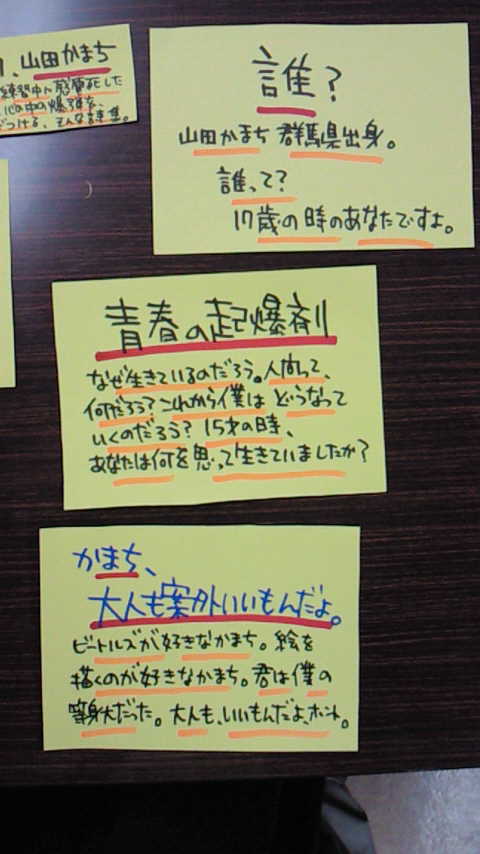 、山田かまち
練習中に感電死した
心の中の爆弾を、
ぶつける、そんな詩集。
誰？
山田かまち 群馬県出身。
誰って？
17歳の時のあなたですよ。
青春の起爆剤
なぜ生きているのだろう。人間って、
何だろう？これから僕はどうなって
いくのだろう？15才の時、
あなたは何を思って生きていましたか？
かまち、
大人も案外いいもんだよ。
ビートルズが好きなかまち。絵を
描くのが好きなかまち。君は僕の
等身大だった。大人も、いいもんだよ、ホント。